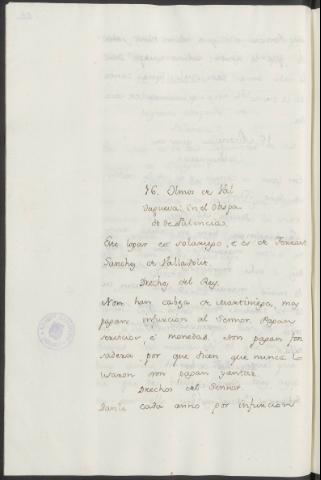 76. Olmos de Val
Dagueva: En el Obispa
do de Palencia.
Este logar es solariego, e es de Ferrant
Sanchez de Valladolit.
Drechos del Rey.
Non han cabeza de martiniega, mas
pagan infurcion al Sennor. Pagan
servicios, é monedas. non pagan fon
sadera por que dicen que nunca lo
usaron nin pagan yantar.
Drechos del Sennor
Danle cada anno por infurcion